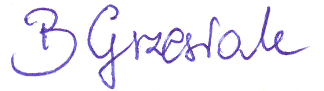 B Grzesiak